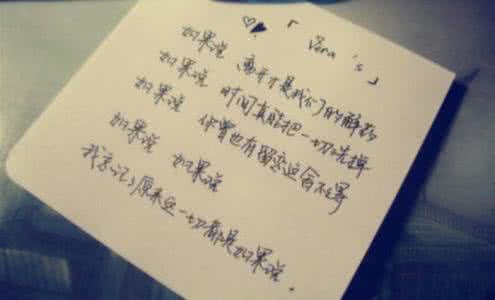 「 Vena 's 」
如果说 离开才是我们的解药
如果说 时间真能把一切洗掉
如果说 你曾也有留恋过舍不得
如果说 如果说
我忘记了原来这一切都是如果说.